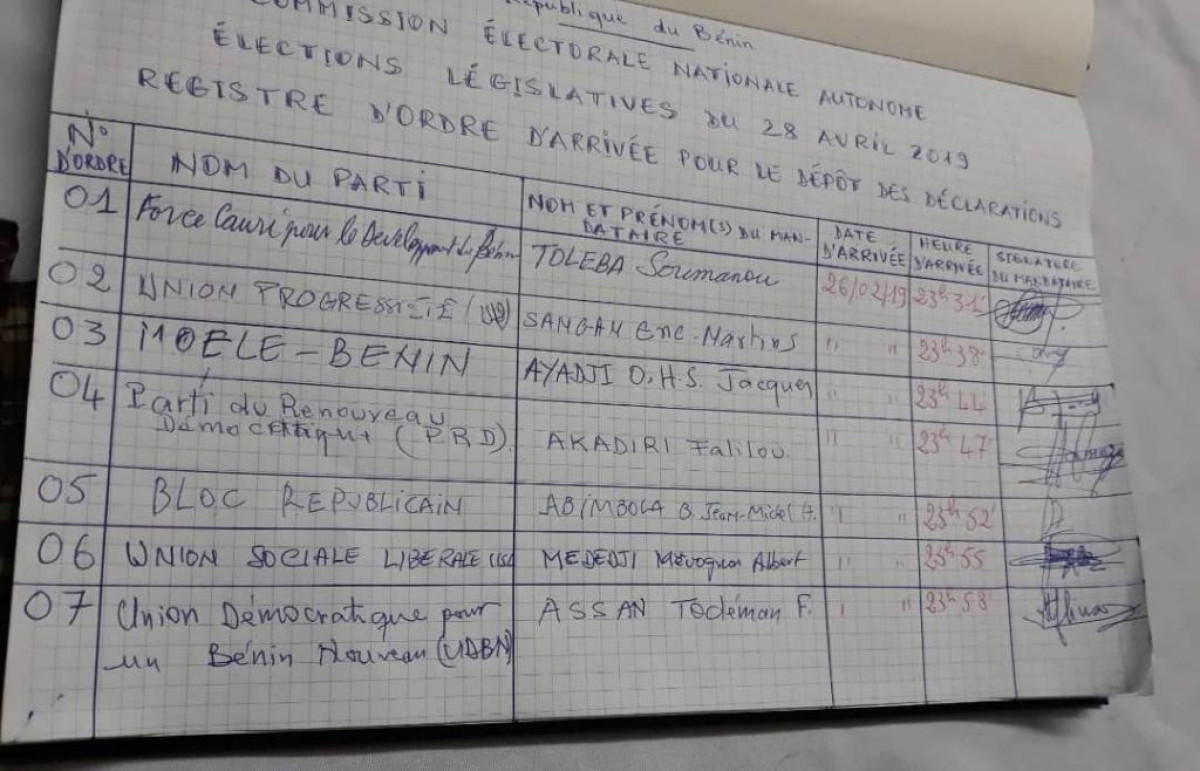 République du Bénin
COMMISSION ÉLECTORALE NATIONALE AUTONOME
ÉLECTIONS LÉGISLATIVES DU 28 AVRIL 2019
REGISTRE D'ORDRE D'ARRIVÉE POUR LE DÉPÔT DES DÉCLARATIONS
N° D'ORDRE NOM DU PARTI NOM ET PRÉNOM(S) DU MANDATAIRE DATE D'ARRIVÉE HEURE D'ARRIVÉE SIGNATURE DU MANDATAIRE
01 Force Cauri pour le Développement du Bénin TOLEBA Soumanou 26/02/19 23h31'
02 UNION PROGRESSISTE (UP) Eric-Martins " " 23h38'
03 MOELE-BENIN AYADJI O.H.S. Jacques " " 23h44
04 Parti du Renouveau
Démocratique (PRD) AKADIRI Falilou " " 23h47'
05 BLOC REPUBLICAIN ABIMBOLA B. Jean-Michel H. " " 23h52'
06 UNION SOCIALE LIBERALE (USL MEDEDJI Albert " " 23h55
07 Union Démocratique pour ASSAN F. " " 23h58'
un Bénin Nouveau (UDBN)